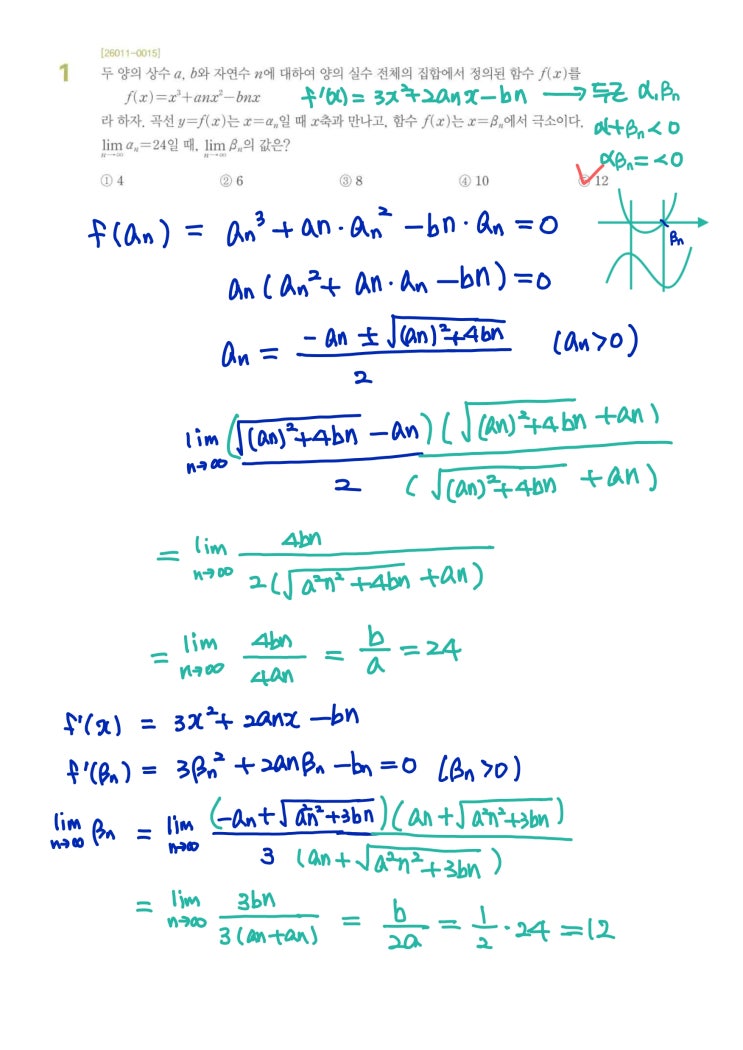 [26011-0015]
1 두 양의 상수 a, b와 자연수 n에 대하여 양의 실수 전체의 집합에서 정의된 함수 f(x)를
f(x)=x³+anx²-bnx f'(x) = 3x²+2anx-bn → 두근 α, βn
라 하자. 곡선 y=f(x)는 x=αₙ일 때 x축과 만나고, 함수 f(x)는 x=βₙ에서 극소이다. α+βn<0
lim n→∞ αₙ=24일 때, lim n→∞ βₙ의 값은? αβn=<0
① 4 ② 6 ③ 8 ④ 10 12
βn
f(an) = an³+an·an²-bn·an=0
an(an²+an·an-bn)=0
an = (-an±√((an)²+4bn))/2 (an>0)
lim n→∞ (√((an)²+4bn)-an)(√((an)²+4bn)+an)/2(√((an)²+4bn)+an)
= lim n→∞ 4bn/2(√(a²n²+4bn)+an)
= lim n→∞ 4bn/4an = b/a = 24
f'(x) = 3x²+2anx-bn
f'(βn) = 3βn²+2anβn-bn=0 (βn>0)
lim n→∞ βn = lim n→∞ (-an+√(a²n²+3bn))(an+√(a²n²+3bn))/3(an+√(a²n²+3bn))
= lim n→∞ 3bn/3(an+an) = b/2a = 1/2·24=12